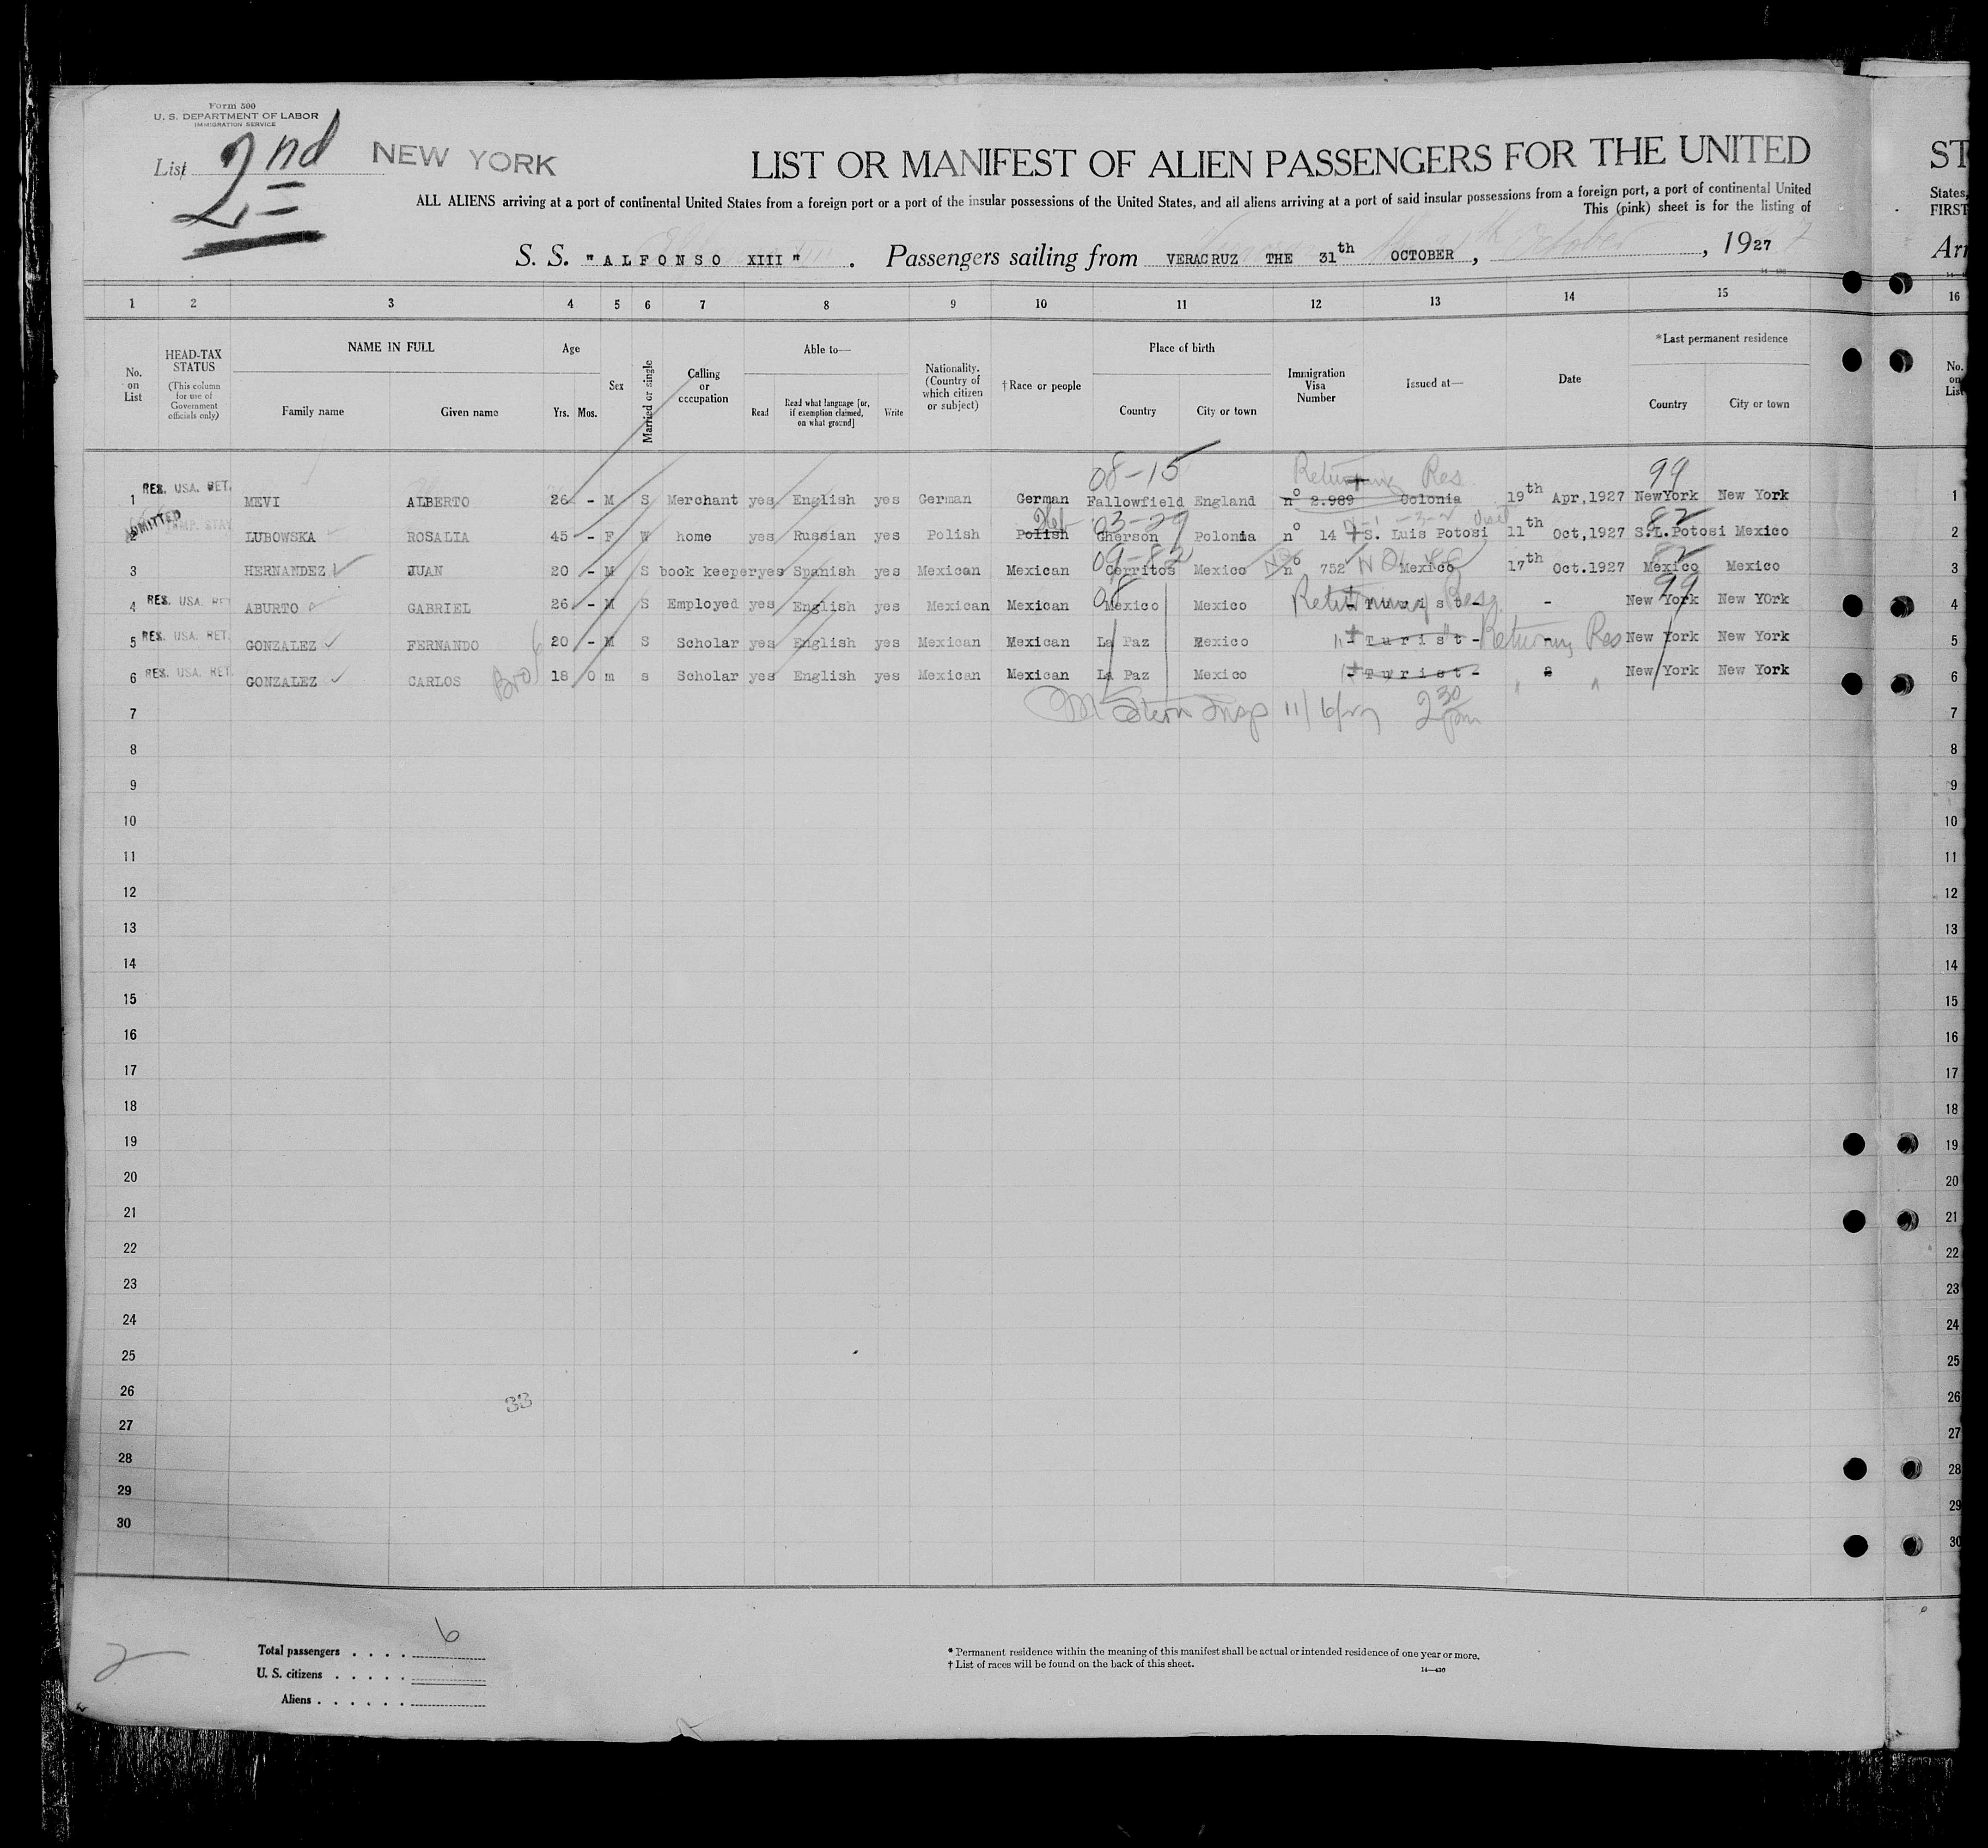 Form 500
U. S. DEPARTMENT OF LABOR
IMMIGRATION SERVICE
List 2nd NEW YORK
2
LIST OR MANIFEST OF ALIEN PASSENGERS FOR THE UNITED ST
ALL ALIENS arriving at a port of continental United States from a foreign port or a port of the insular possessions of the United States, and all aliens arriving at a port of said insular possessions from a foreign port, a port of continental United States,
This (pink) sheet is for the listing of FIRST
S. S. "ALFONSO XIII". Passengers sailing from VERACRUZ THE 31th OCTOBER, , 1927 Arr
1 2 3 4 5 6 7 8 9 10 11 12 13 14 15 16
No. on List
HEAD-TAX STATUS
(This column for use of Government officials only)
NAME IN FULL
Family name Given name
Age
Yrs. Mos.
Sex
Married or single
Calling or occupation
Able to—
Read
Read what language [or, if exemption claimed, on what ground]
Write
Nationality. (Country of which citizen or subject)
† Race or people
Place of birth
Country City or town
Immigration Visa Number
Issued at—
Date
*Last permanent residence
Country City or town
No. on List
08-15 Returning Res. 99
1 RES. USA. RET. MEVI ALBERTO 26 - M S Merchant yes English yes German German Fallowfield England no 2.989 Colonia 19th Apr,1927 NewYork New York 1
Heb 03-29 82
2 ADMITTED TEMP. STAY LUBOWSKA ROSALIA 45 - F W home yes Russian yes Polish Polish Gherson Polonia no 14 S. Luis Potosi 11th Oct,1927 S.L.Potosi Mexico 2
09-82 82
3 HERNANDEZ JUAN 20 - M S book keeper yes Spanish yes Mexican Mexican Cerritos Mexico no 752 Mexico 17th Oct.1927 Mexico Mexico 3
08 Returning Res. 99
4 RES. USA. RET ABURTO GABRIEL 26 - M S Employed yes English yes Mexican Mexican Mexico Mexico - Turist - - New York New York 4
5 RES. USA. RET. GONZALEZ FERNANDO 20 - M S Scholar yes English yes Mexican Mexican La Paz Mexico - Turist - Returning Res - New York New York 5
6 RES. USA. RET. GONZALEZ CARLOS Bro 18 0 m s Scholar yes English yes Mexican Mexican La Paz Mexico - Turist - New York New York 6
7 Stern Insp 11/6/27 2 30 pm
8 8
9 9
10 10
11 11
12 12
13 13
14 14
15 15
16 16
17 17
18 18
19 19
20 20
21 21
22 22
23 23
24 24
25 25
26 33 26
27 27
28 28
29 29
30 30
2
Total passengers . . . . 6
U. S. citizens . . . . .
Aliens . . . . . .
* Permanent residence within the meaning of this manifest shall be actual or intended residence of one year or more.
† List of races will be found on the back of this sheet.
14—430